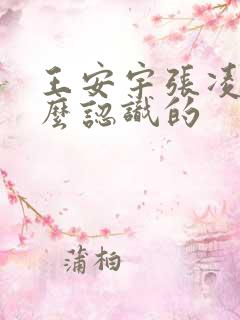 王安宇張凌
麼認識的
蒲柏